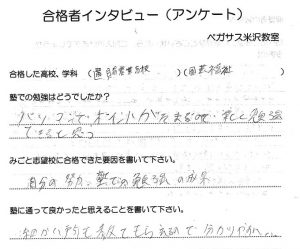 合格者インタビュー（アンケート）
ペガサス米沢教室
合格した高校、学科（置賜農業高校）（園芸福祉）
塾での勉強はどうでしたか？
パソコンでポイントが
できると思う
みごと志望校に合格できた要因を書いて下さい。
自分の努力、塾での勉強の成果
塾に通って良かったと思えることを書いて下さい。
細かい所も教えてもらえるので分かりやすい